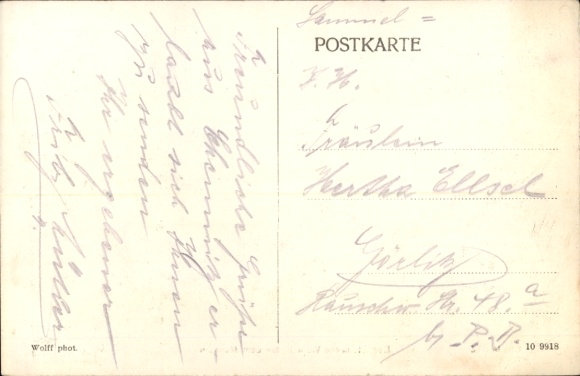 Freundliche Grüße
aus Chemnitz er-
laubt sich Ihnen
zu senden
Ihr ergebener
Fritz Müller
Sammel=
POSTKARTE
Fräulein
Hertha Ellsel
Görlitz
Rauschw. Str. 48. a
b/ P. B.
Wolff phot.
10 9918